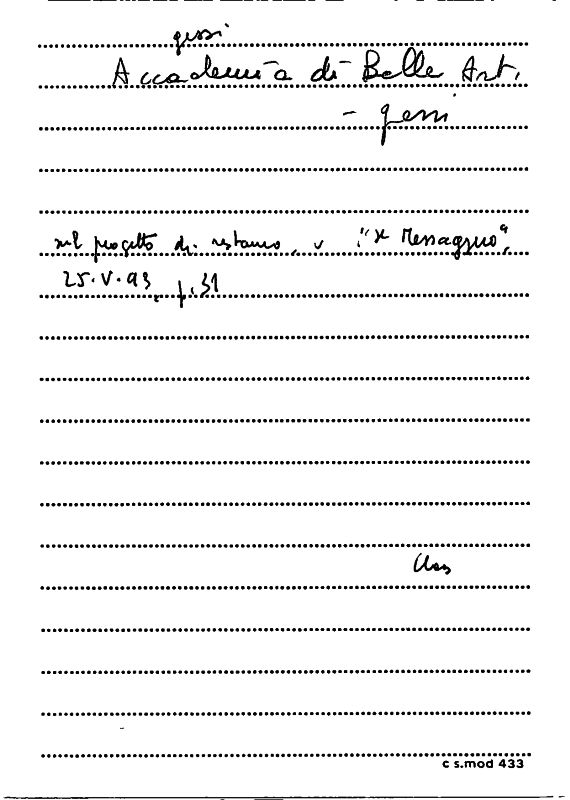 gessi
Accademia di Belle Arti
- gessi
sul progetto di restauro, v. "Il Messaggero",
25.V.93, p. 31
c s.mod 433